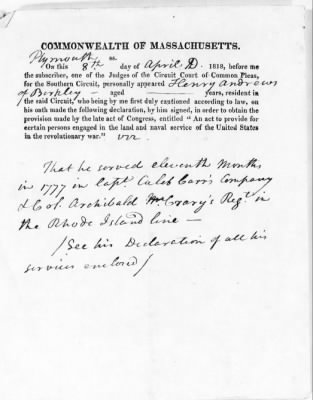 COMMONWEALTH OF MASSACHUSETTS.
Plymouth ss.
On this 8th day of April D. 1818, before me
the subscriber, one of the Judges of the Circuit Court of Common Pleas,
for the Southern Circuit, personally appeared Henry Andrews
of Berkley — aged ——— years, resident in
the said Circuit, who being by me first duly cautioned according to law, on
his oath made the following declaration, by him signed, in order to obtain the
provision made by the late act of Congress, entitled "An act to provide for
certain persons engaged in the land and naval service of the United States
in the revolutionary war." viz
That he served eleventh Months
in 1777 in Capt. Caleb Carr's Company
& Col. Archibald Crary's Regt. in
the Rhode Island line —
(See his Declaration of all his
services enclosed)